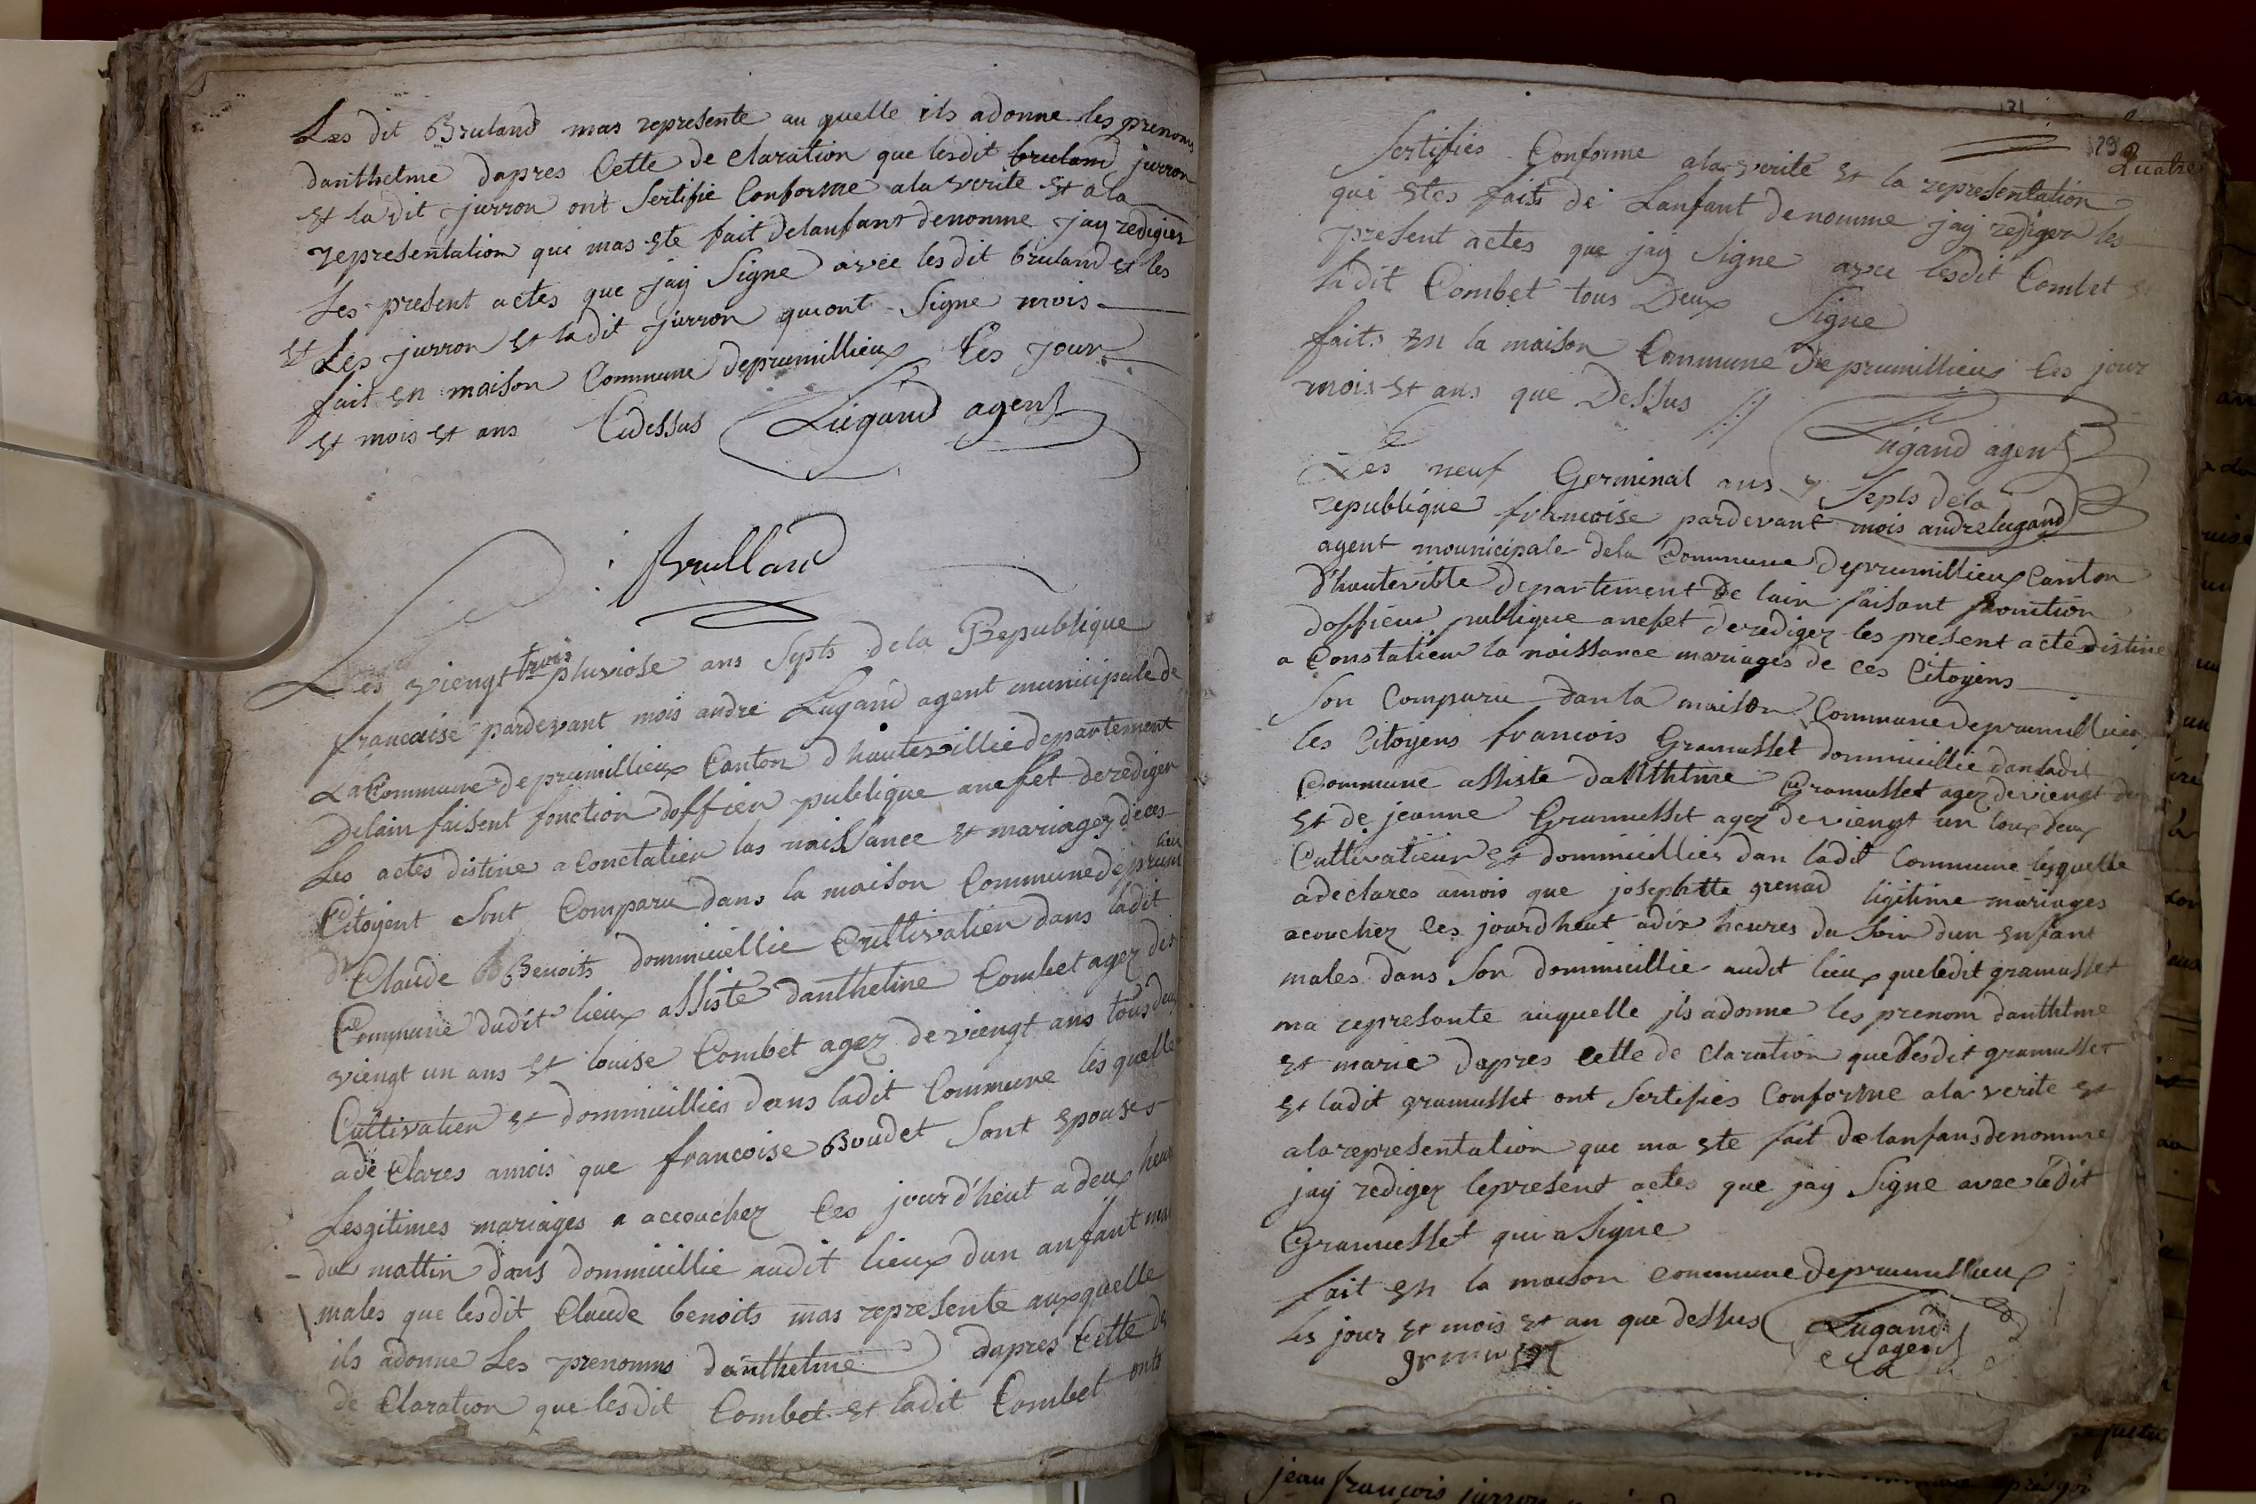 Les dit Bruland mas represente au quelle ils adonne les prenoms
danthelme dapres Cette de claration que lesdit bruland jurron
et la dit jurron ont Sertifie Conforme ala verite et a la
representation qui mas ete fait delanfant denomme jay redigier
Les present actes que jay Signe avec lesdit bruland et les
et Les jurron et ladit jurron quiont Signe mois
fait en maison Commune deprumillieux Ces jour
et mois et ans Cidessus Lugand agent
Brulland
Les viengt trois pluviose ans Septs dela Republique
francaise pardevant mois andre Lugand agent municipale de
La Commune deprumillieux Canton dhautevillie departement
Delain faisent fonction doffier publique anefet derediger
Les actes distine a Conctatier las naissance et mariagez deces
Citoyent Sont Comparu dans la maison Commune deprumilieux
Claude Benoits dommicillie Cultivatien dans ladit
Commune dudit lieux assiste danthelme Combet agez de
viengt un ans et louise Combet agez de viengt ans tous deux
Cultivatien et dommicillies dans ladit Commune lesquelle
ade Clares amois que francoise Boudet Sont epouse
Lesgitimes mariages a accouchez Ces jourd'heut a deux heur
du mattin dans dommicillie audit lieux dun anfant mal
males que lesdit Claude benoits mas represente auxquelle
ils adonne Les prenomms danthelme dapres Cette de
de Claration que lesdit Combet et ladit Combet onts
121
129
Quatre
Sertifies Conforme ala verite et la representation
qui etes faits de Lanfant denomme jay rediger les
present actes que jay Signe avec lesdit Combet et
ladit Combet tous Deux Signe
fait en la maison Commune de prumillieux Ces jour
mois et ans que Dessus
Lugand agent
Les neuf Germinal ans 7 Septs dela
republique francoise pardevant mois andre lugand
agent mounicipale dela Commune deprumillieux Canton
d'hauteville departement De lain faisant fonction
doffieur publique anefet deredigez les present acte distine
a Constatieu la naissance mariages de ces Citoyens
Son Comparu dan la maison Commune deprumillieux
les Citoyens francois Gramusset dommicillie dan ladit
Commune assiste danthelme Gramusset agez de viengt deux
et de jeanne Gramusset agez de viengt un tous deux
Cultivatieur et dommicillier dan ladit Commune lesquelle
adeclares amois que josephtte grenad legitime mariages
acouchez Ces jourdheut adix heures du Soir dun enfant
males dans Son dommicillie audit lieux queledit gramusset
ma represante auquelle jls adonne les prenom danthelme
et marie dapres cette de claration que lesdit gramusset
et ladit gramusset ont Sertifies Conforme ala verite et
ala representation que ma ete fait de lanfans denomme
jay redigez lepresent actes que jay Signe avec ledit
Gramusset qui a Signe
fait en la maison commune deprumillieux
les jour et mois et an que dessus Lugand
agent